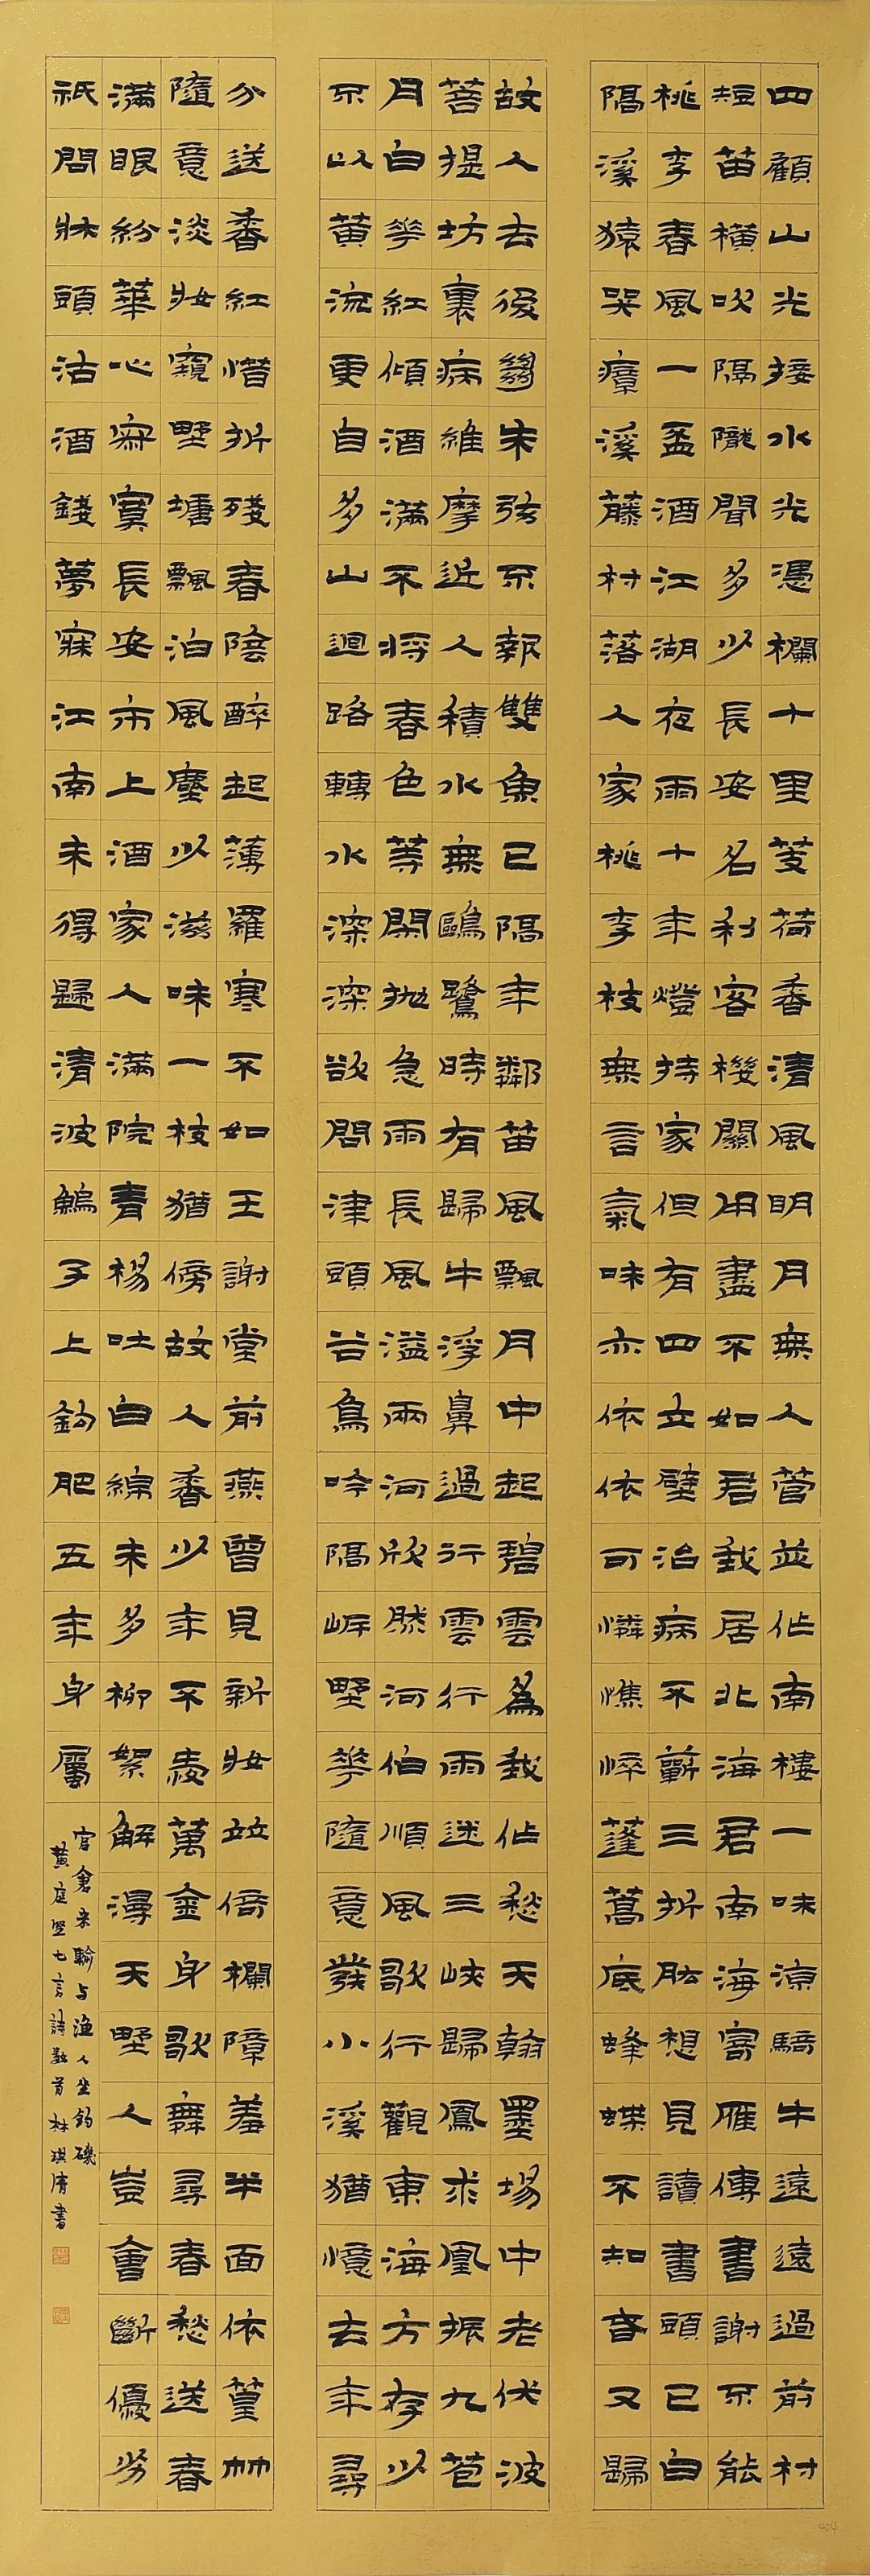 四顧山光接水光憑欄十里芰荷香清風明月無人管並作南樓一味涼騎牛遠遠過前村
短笛橫吹隔隴聞多少長安名利客機關用盡不如君我居北海君南海寄雁傳書謝不能
桃李春風一盃酒江湖夜雨十年燈持家但有四立壁治病不蘄三折肱想見讀書頭已白
隔溪猿哭瘴溪藤村落人家桃李枝無言氣味亦依依可憐憔悴蓬蒿底蜂蝶不知春又歸
故人去後絕朱弦不報雙魚已隔年鄰笛風飄月中起碧雲為我作愁天翰墨場中老伏波
菩提坊裏病維摩近人積水無鷗鷺時有歸牛浮鼻過行雲行雨迷三峽歸鳳求凰振九苞
月白花紅傾酒滿不將春色等閑拋急雨長風溢兩河欣然河伯順風歌行觀東海方存少
不以黃流更自多山迴路轉水深深欲問津頭谷鳥吟隔岸野花隨意發小溪猶憶去年尋
分送香紅惜折殘春陰醉起薄羅寒不如王謝堂前燕曾見新妝竝倚欄障羞半面依篁竹
隨意淡妝窺野塘飄泊風塵少滋味一枝猶傍故人香少年不惜萬金身歌舞尋春愁送春
滿眼紛華心寂寞長安市上酒家人滿院青楊吐白綿未多柳絮解漫天野人豈會斷優劣
祇問牀頭沽酒錢夢寐江南未得歸清波鰞子上鉤肥五年身屬
官倉米輸与漁人坐釣磯
黃庭堅七言詩數首林琪清書